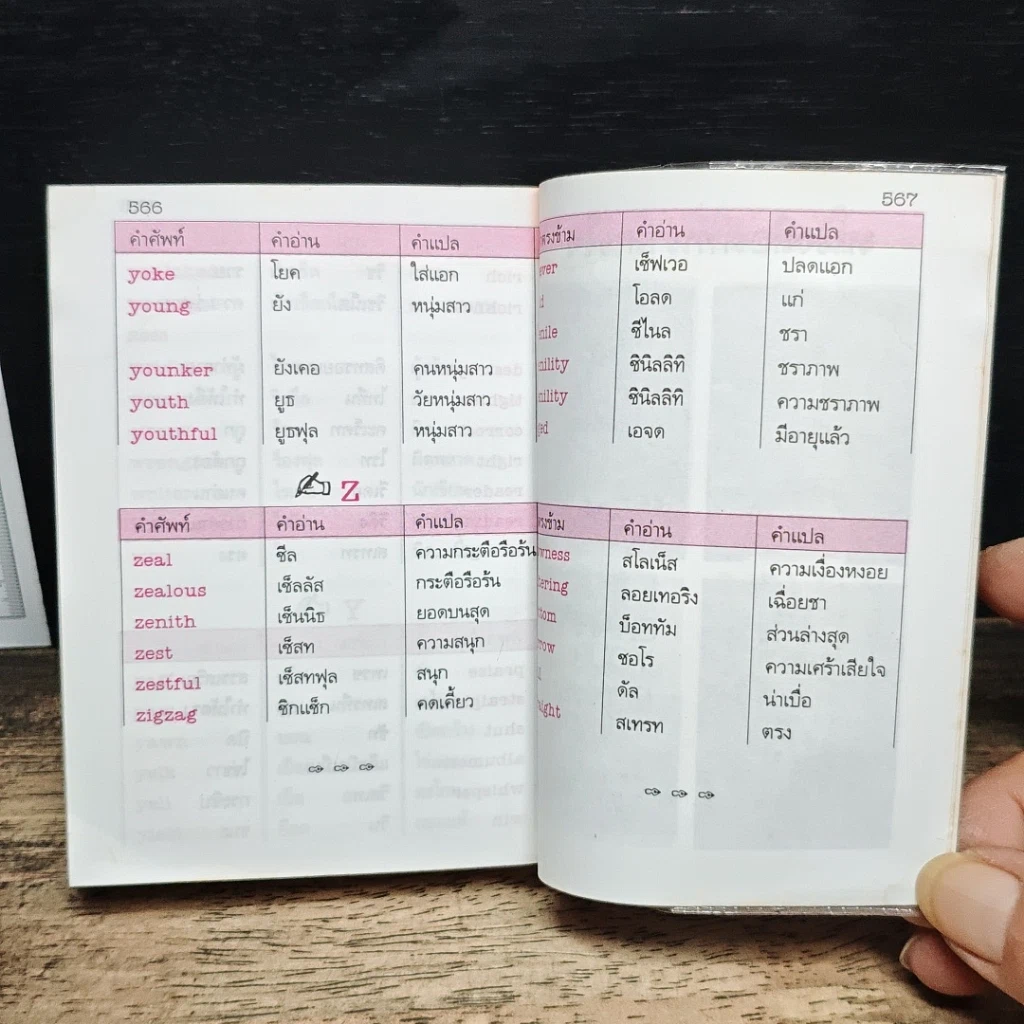 566
คำศัพท์ คำอ่าน คำแปล
yoke โยค ใส่แอก
young ยัง หนุ่มสาว
younker ยังเคอ คนหนุ่มสาว
youth ยูธ วัยหนุ่มสาว
youthful ยูธฟุล หนุ่มสาว
Z
คำศัพท์ คำอ่าน คำแปล
zeal ซีล ความกระตือรือร้น
zealous เซ็ลลัส กระตือรือร้น
zenith เซ็นนิธ ยอดบนสุด
zest เซ็สท ความสนุก
zestful เซ็สทฟุล สนุก
zigzag ซิกแซ็ก คดเคี้ยว
567
ตรงข้าม คำอ่าน คำแปล
ever เซ็ฟเวอ ปลดแอก
โอลด แก่
nile ซีไนล ชรา
nility ซินิลลิทิ ชราภาพ
nility ซินิลลิทิ ความชราภาพ
ged เอจด มีอายุแล้ว
ตรงข้าม คำอ่าน คำแปล
owness สโลเน็ส ความเงื่องหงอย
tering ลอยเทอริง เฉื่อยชา
ttom บ็อททัม ส่วนล่างสุด
rrow ซอโร ความเศร้าเสียใจ
ดัล น่าเบื่อ
aight สเทรท ตรง